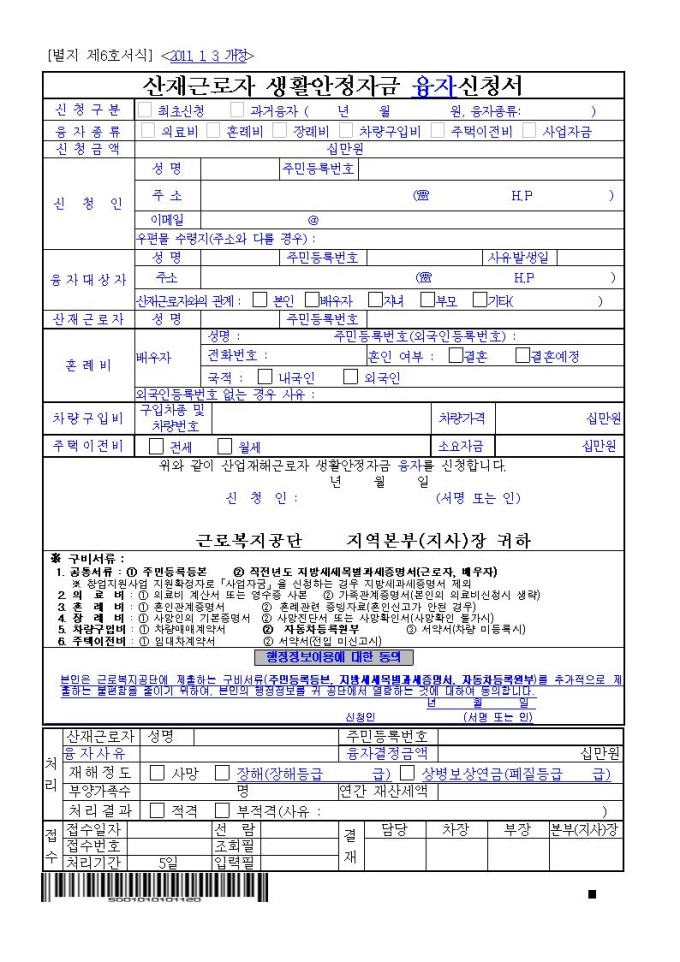 [별지 제6호서식] <2011. 1. 3. 개정>
산재근로자 생활안정자금 융자신청서
신 청 구 분 □ 최초신청 □ 과거융자 ( 년 월 원, 융자종류: )
융 자 종 류 □ 의료비 □ 혼례비 □ 장례비 □ 차량구입비 □ 주택이전비 □ 사업자금
신 청 금 액 십만원
신 청 인 성 명 주민등록번호
주 소 (☎ H.P )
이메일 @
우편물 수령지(주소와 다를 경우) :
융 자 대 상 자 성 명 주민등록번호 사유발생일
주소 (☎ H.P )
산재근로자와의 관계 : □ 본인 □배우자 □자녀 □부모 □기타( )
산 재 근 로 자 성 명 주민등록번호
혼 례 비 배우자 성명 : 주민등록번호(외국인등록번호) :
전화번호 : 혼인 여부 : □결혼 □결혼예정
국적 : □ 내국인 □ 외국인
외국인등록번호 없는 경우 사유 :
차 량 구 입 비 구입차종 및 차량번호 차량가격 십만원
주 택 이 전 비 □ 전세 □ 월세 소요자금 십만원
위와 같이 산업재해근로자 생활안정자금 융자를 신청합니다.
년 월 일
신 청 인 : (서명 또는 인)
근로복지공단 지역본부(지사)장 귀하
※ 구비서류 :
1. 공통서류 : ① 주민등록등본 ② 직전년도 지방세세목별과세증명서(근로자, 배우자)
※ 창업지원사업 지원확정자로 「사업자금」을 신청하는 경우 지방세과세증명서 제외
2. 의 료 비 : ① 의료비 계산서 또는 영수증 사본 ② 가족관계증명서(본인의 의료비신청시 생략)
3. 혼 례 비 : ① 혼인관계증명서 ② 혼례관련 증빙자료(혼인신고가 안된 경우)
4. 장 례 비 : ① 사망인의 기본증명서 ② 사망진단서 또는 사망확인서(사망확인 불가시)
5. 차량구입비 : ① 차량매매계약서 ② 자동차등록원부 ③ 서약서(차량 미등록시)
6. 주택이전비 : ① 임대차계약서 ② 서약서(전입 미신고시)
행정정보이용에 대한 동의
본인은 근로복지공단에 제출하는 구비서류(주민등록등본, 지방세세목별과세증명서, 자동차등록원부)를 추가적으로 제
출하는 불편함을 줄이기 위하여, 본인의 행정정보를 귀 공단에서 열람하는 것에 대하여 동의합니다.
년 월 일
신청인 (서명 또는 인)
처 리 산재근로자 성명 주민등록번호
융 자 사 유 융자결정금액 십만원
재 해 정 도 □ 사망 □ 장해(장해등급 급) □ 상병보상연금(폐질등급 급)
부양가족수 명 연간 재산세액
처 리 결 과 □ 적격 □ 부적격(사유 : )
접 수 접수일자 선 람 결 재 담당 차장 부장 본부(지사)장
접수번호 조회필
처리기간 5일 입력필
S001010101120